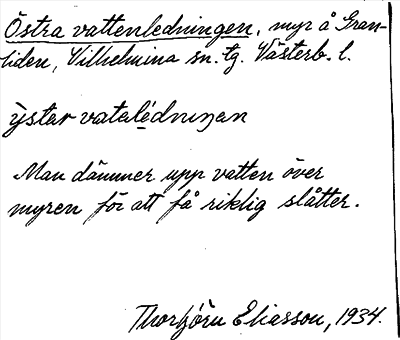 Östra vattenledningen, myr å Gran-
liden, Vilhelmina sn. tg. Västerb. l.
ÿster vatalẹ́dnuŋen
Man dämmer upp vatten över
myren för att få riklig slåtter.
Thorbjörn Eliasson, 1934.